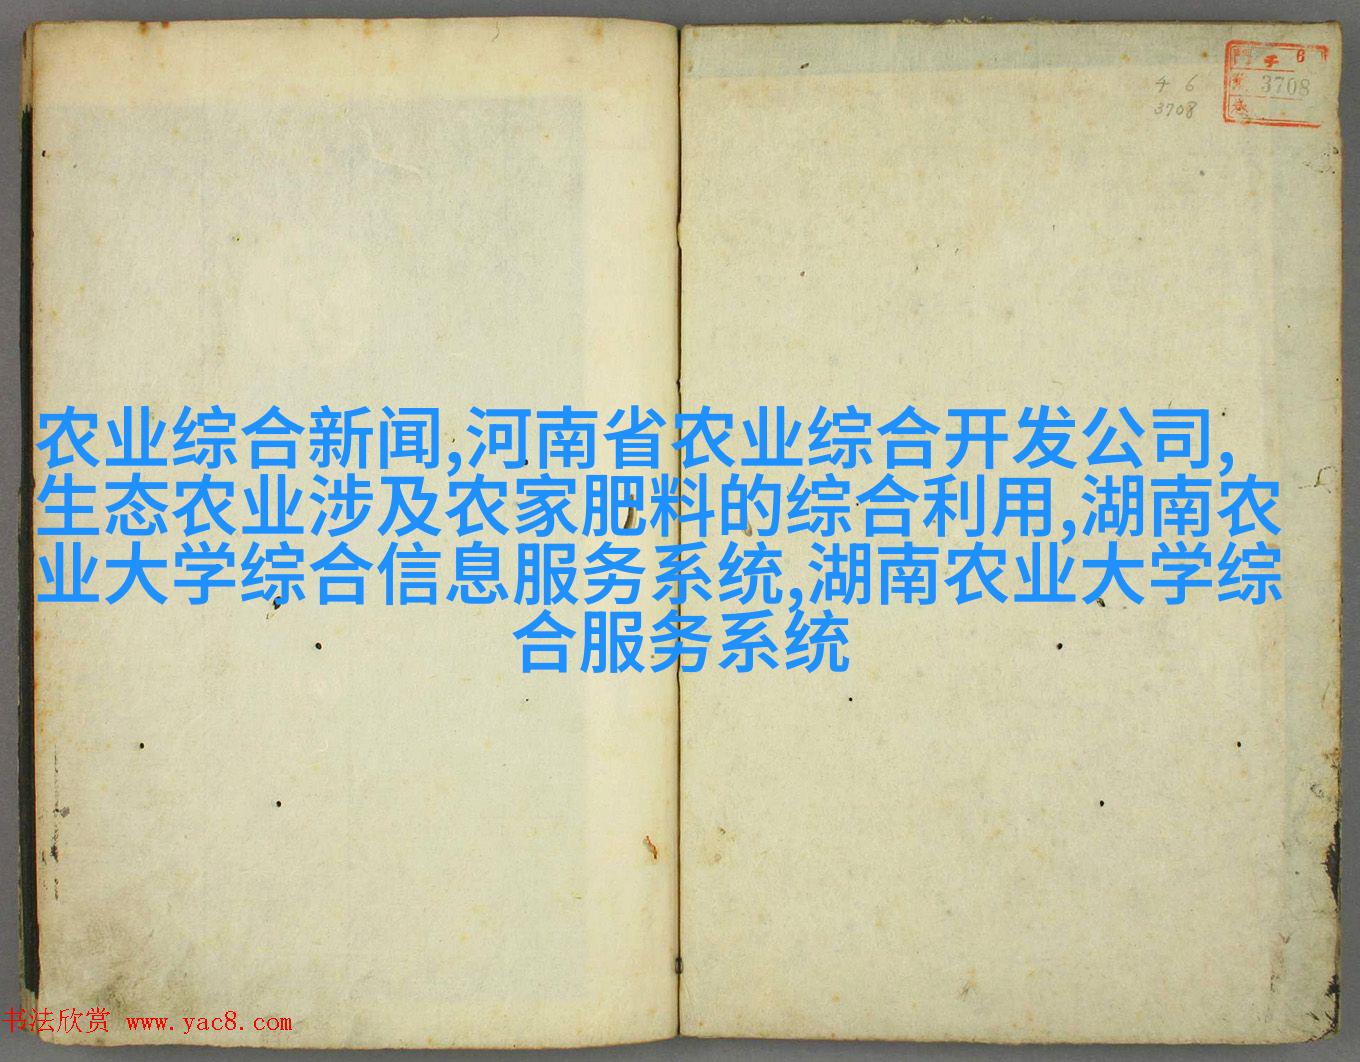 4 6
3708
6
3708
农业综合新闻,河南省农业综合开发公司,
生态农业涉及农家肥料的综合利用,湖南农
业大学综合信息服务系统,湖南农业大学综
合服务系统
书法欣赏 www.yac8.com